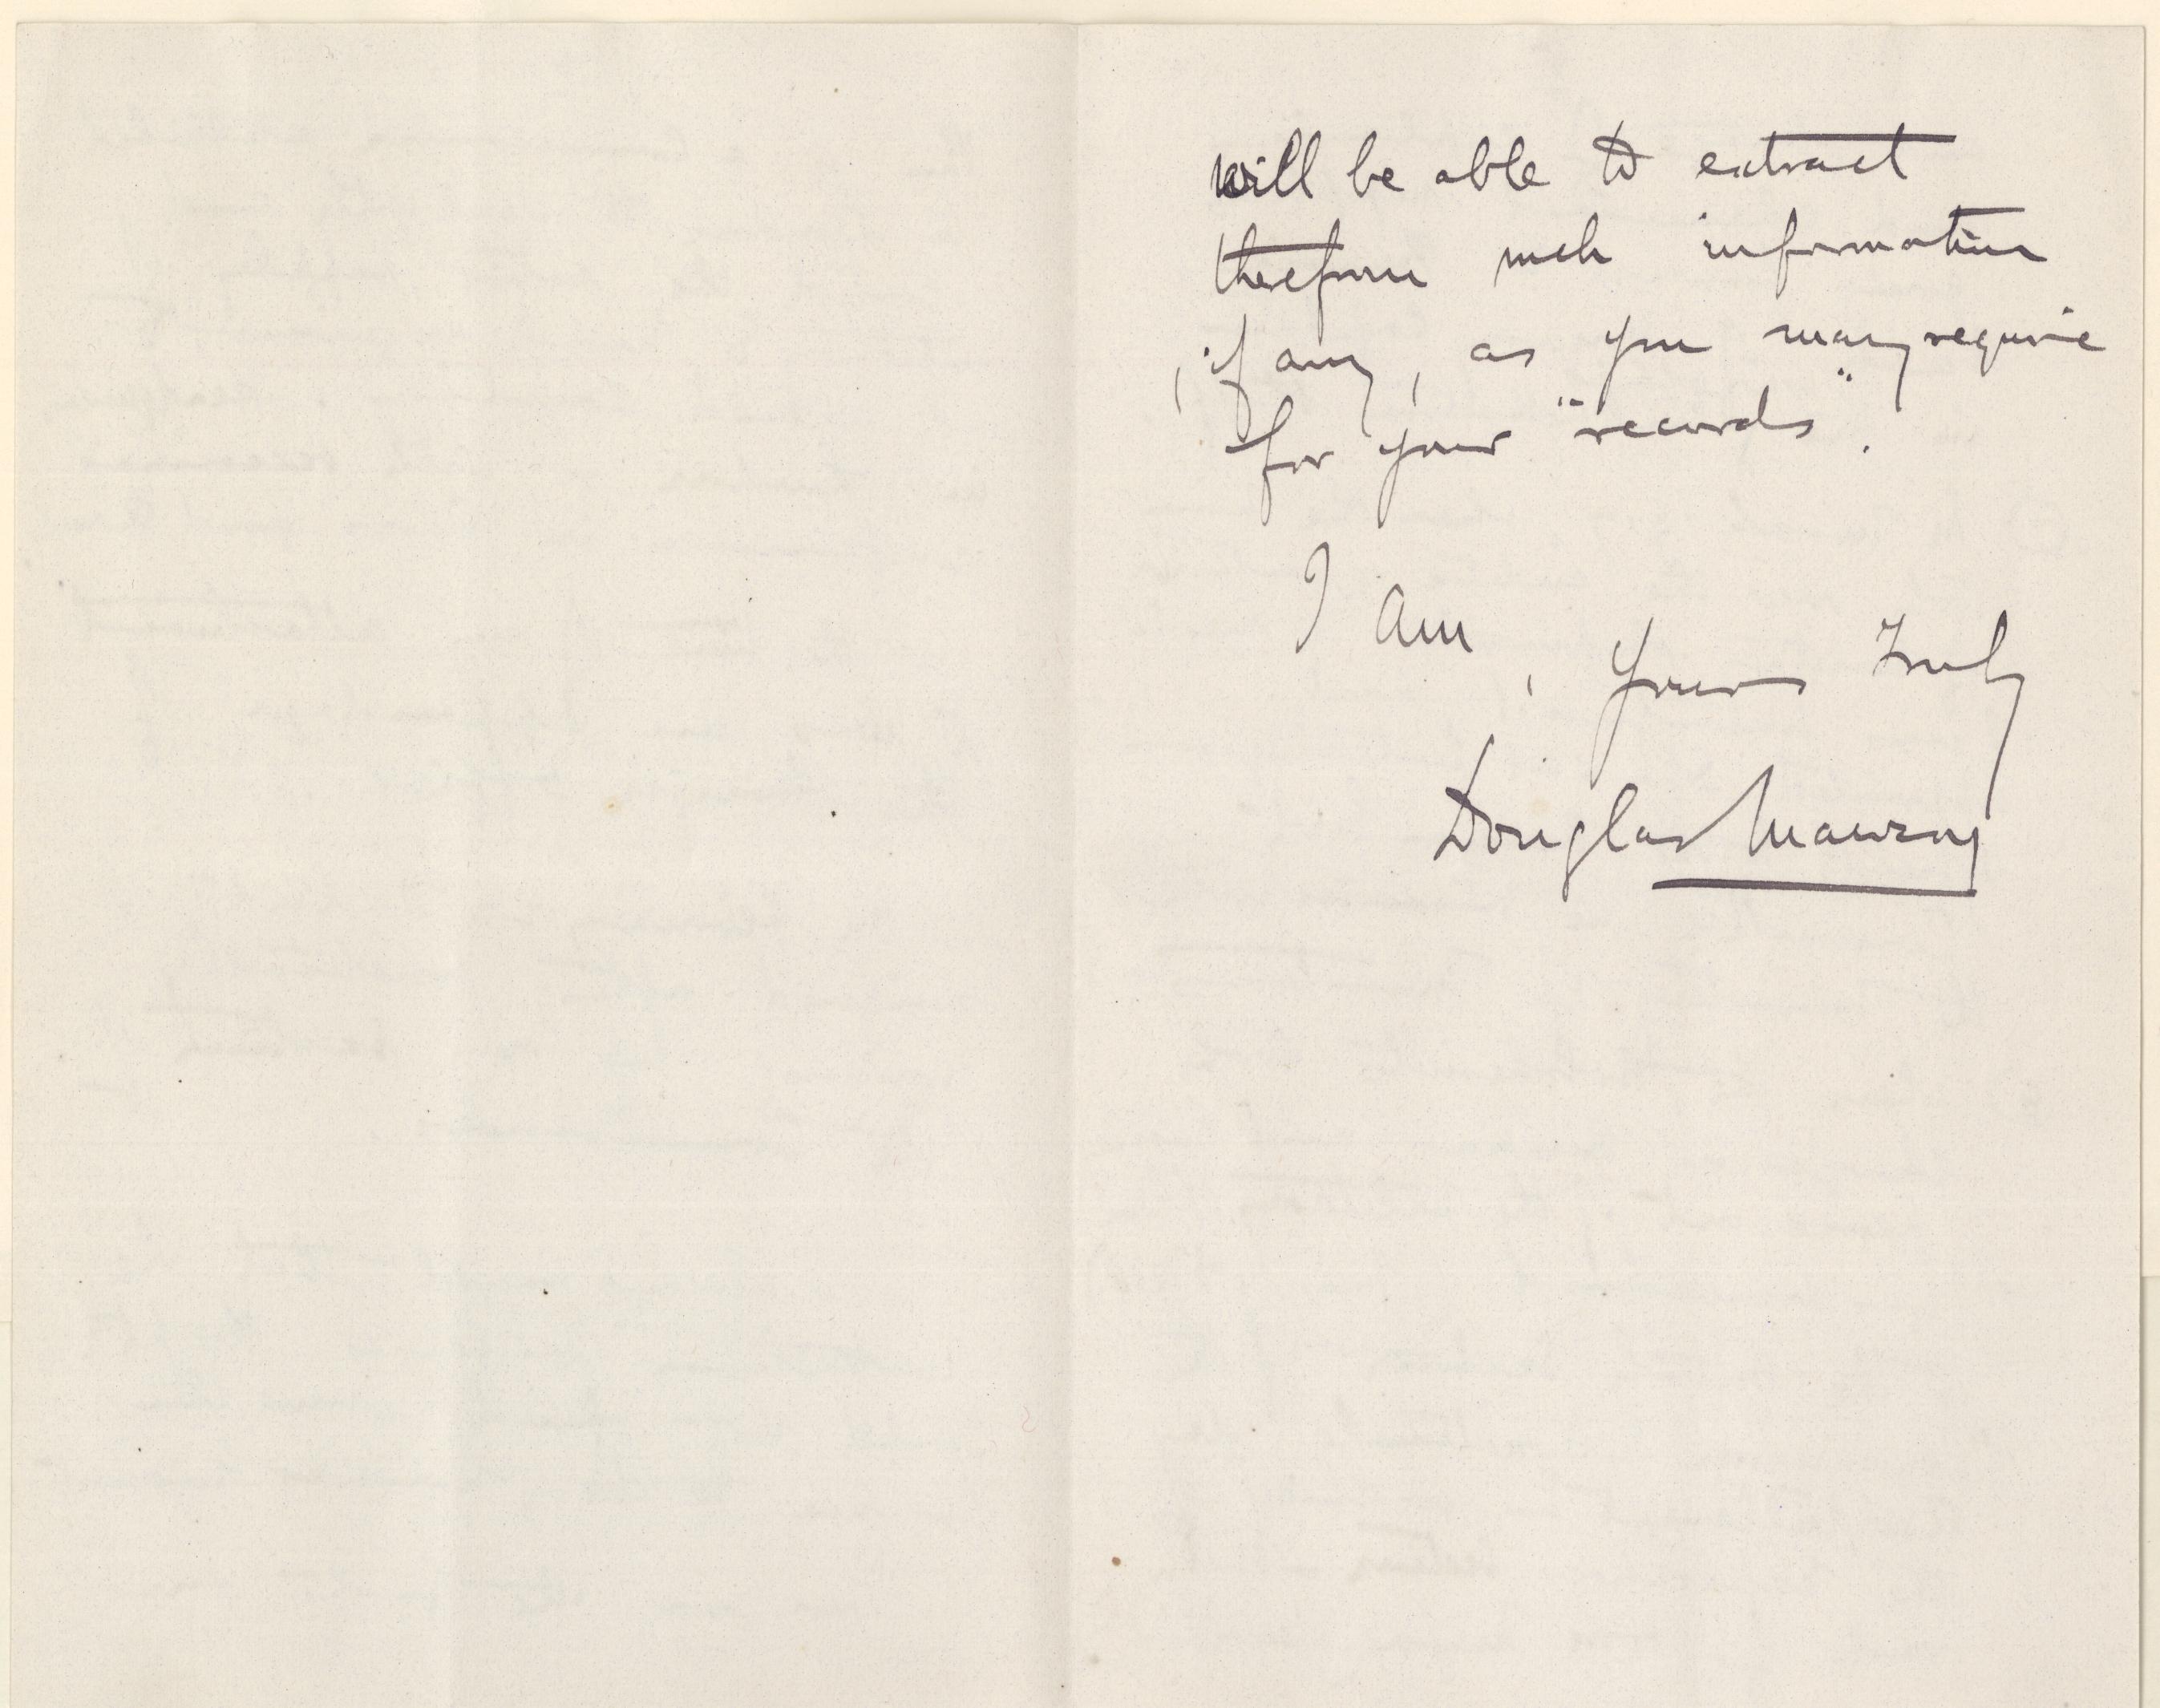 will be able to extract
therefrom such information
, if any, as you may require
for your "records".
I am, Yours Truly
Douglas Mawson